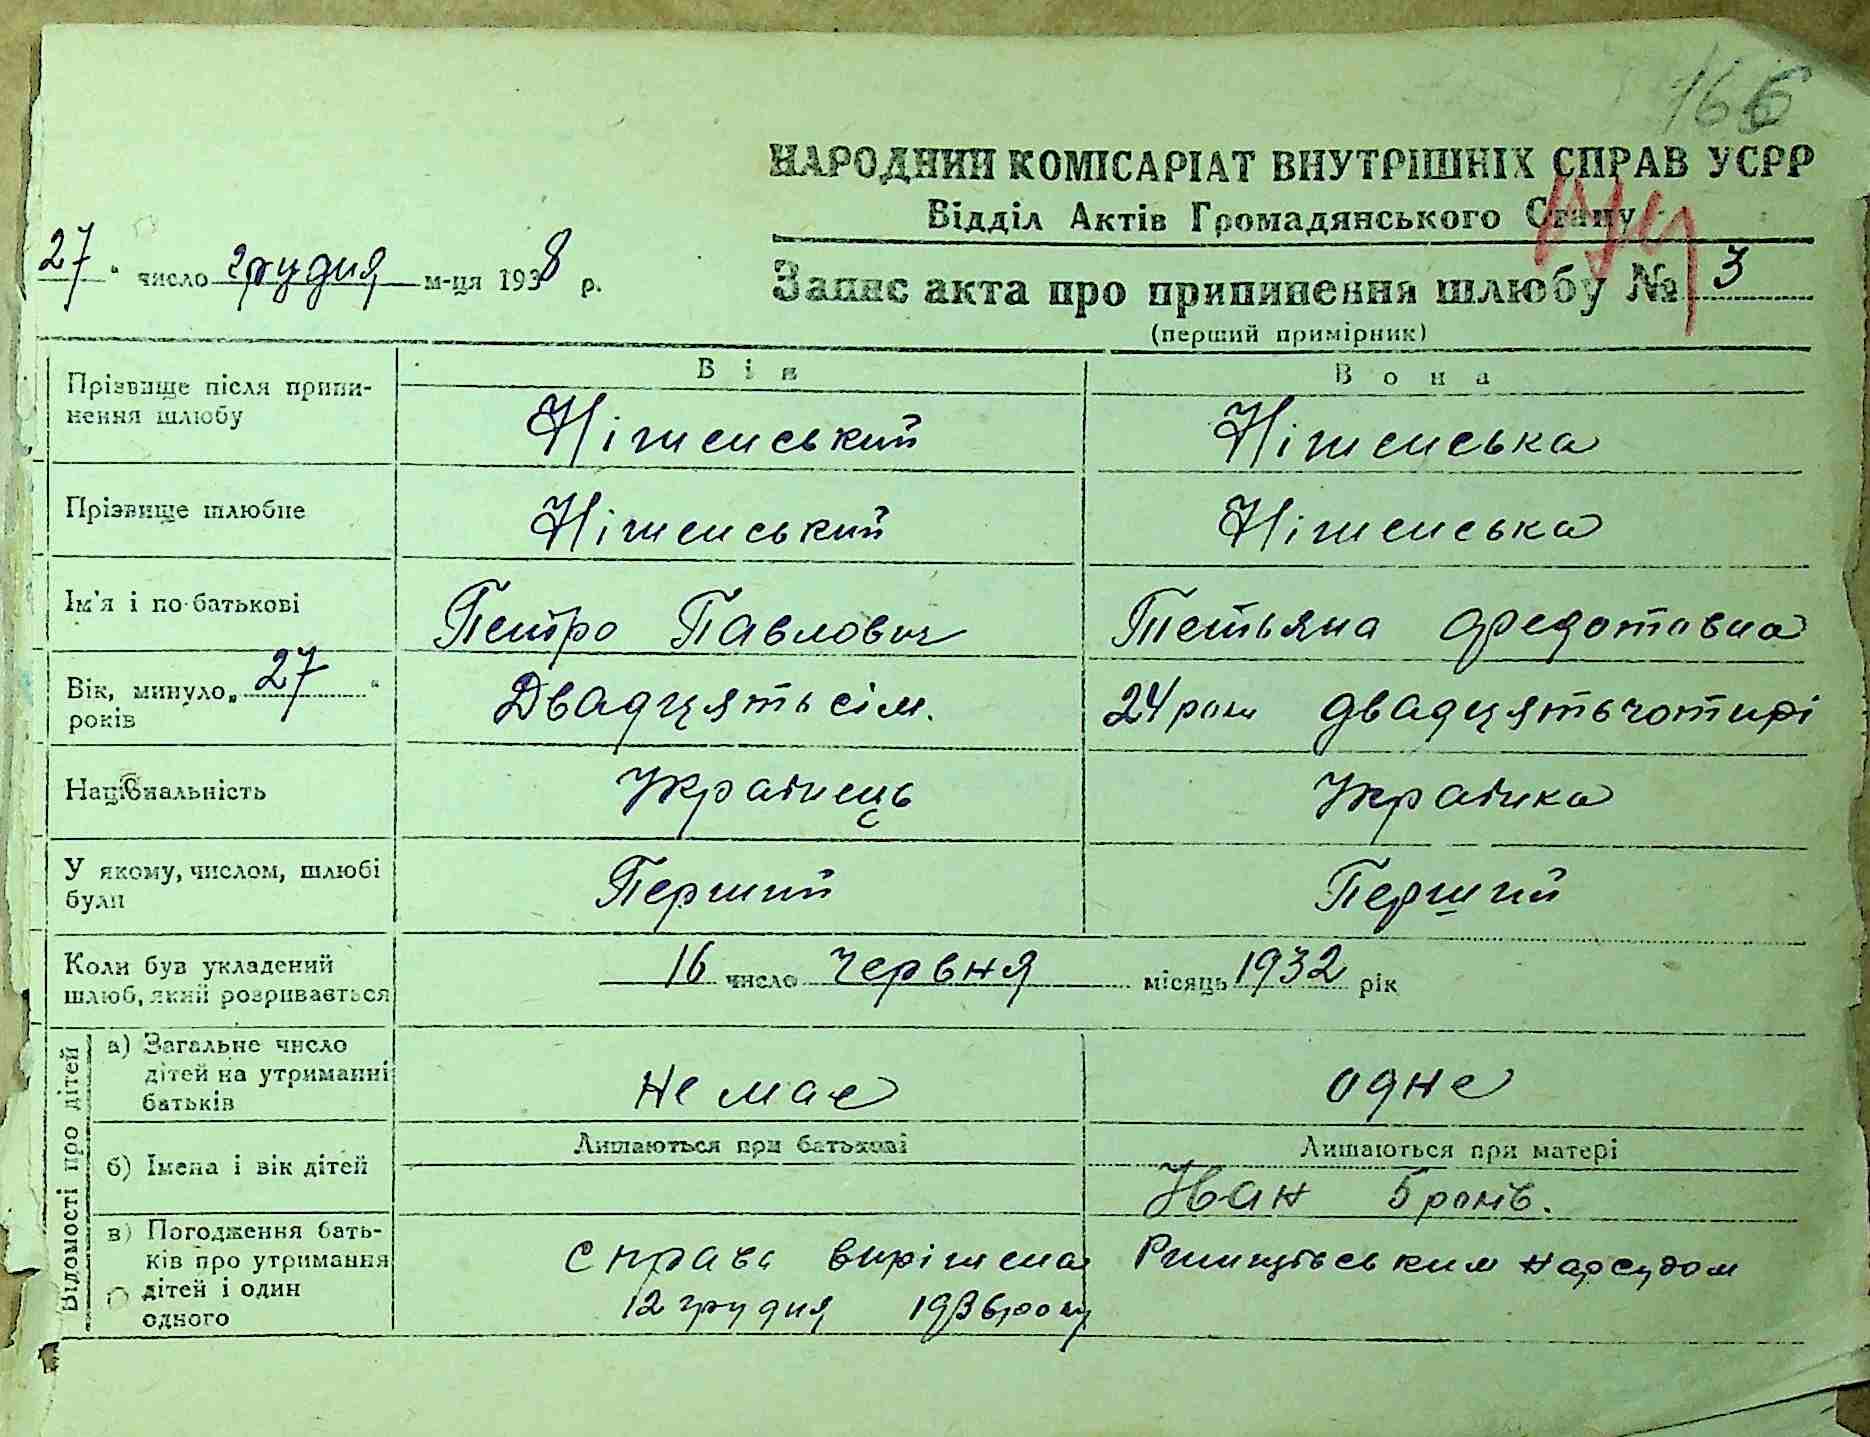 166
НАРОДНИЙ КОМІСАРІАТ ВНУТРІШНІХ СПРАВ УСРР
Відділ Актів Громадянського Стану
27 число грудня м-ця 1938 р.
Запис акта про припинення шлюбу № 3
(перший примірник)
Він Вона
Прізвище після припинення шлюбу Ніженський Ніженська
Прізвище шлюбне Ніженський Ніженська
Ім'я і по-батькові Петро Павлович Тетьяна Федотовна
Вік, минуло „27“ років Двадцятьсім. 24 роки двадцятьчотирі
Національність Українець Українка
У якому, числом, шлюбі були Перший Перший
Коли був укладений шлюб, який розривається 16 число червня місяць 1932 рік
Відомості про дітей
а) Загальне число дітей на утриманні батьків не має одне
Лишаються при батькові Лишаються при матері
б) Імена і вік дітей Іван 5 років.
в) Погодження батьків про утримання дітей і один одного Справа вирішена Ржищівським нарсудом
12 грудня 1936 року